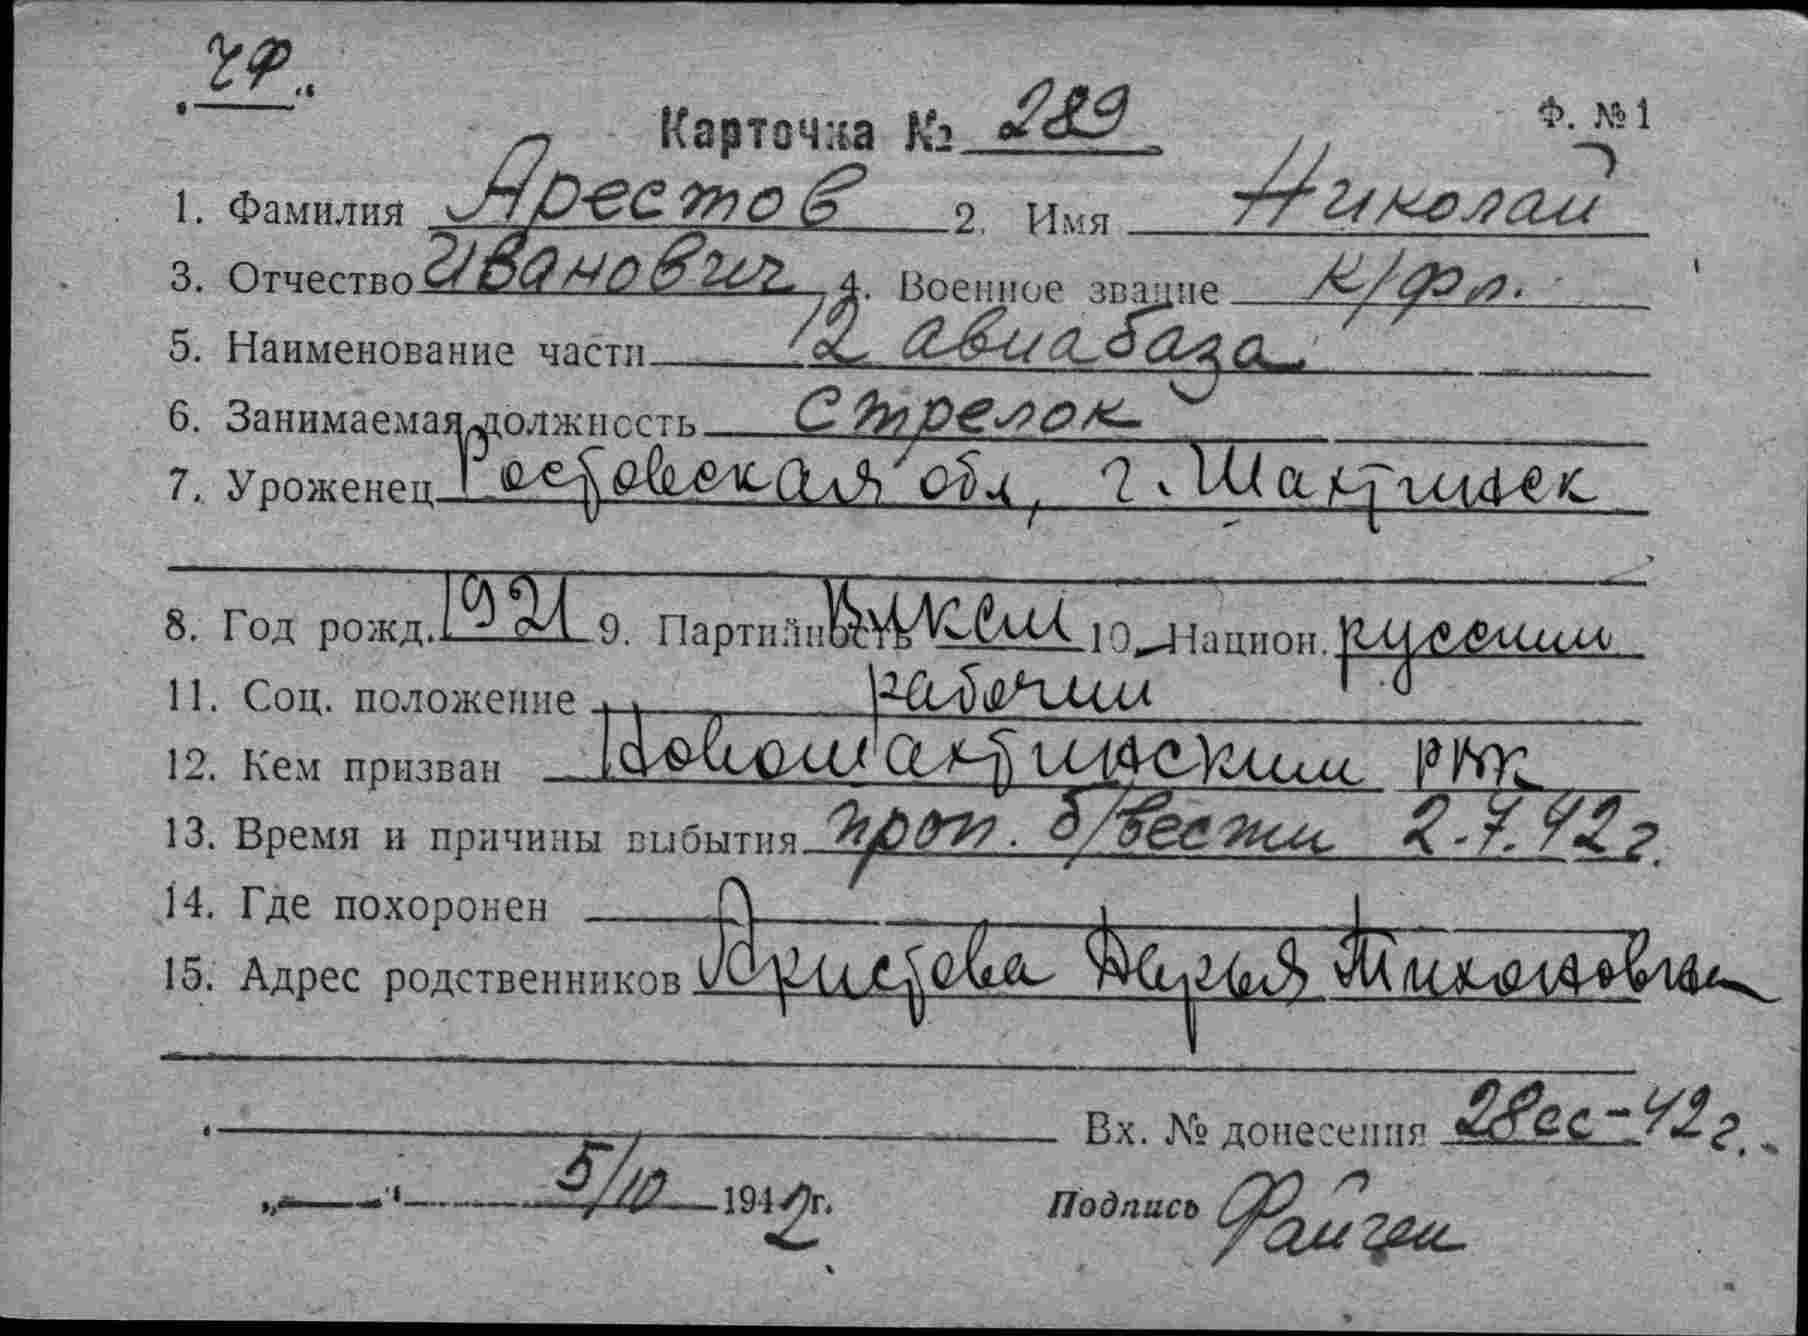 ЧФ.
Карточка № 289 Ф. № 1
1. Фамилия Арестов 2. Имя Николай
3. Отчество Иванович 4. Военное звание к/фл.
5. Наименование части 12 авиабаза
6. Занимаемая должность стрелок
7. Уроженец Ростовская обл, г. Шахтинск
8. Год рожд. 1921 9. Партийность ВЛКСМ 10. Национ. русский
11. Соц. положение рабочий
12. Кем призван Новошахтинским РВК
13. Время и причины выбытия проп. б/вести 2.7.42 г.
14. Где похоронен
15. Адрес родственников Аристова Дарья Тихоновна
Вх. № донесения 28сс-42 г.
„ “ 5/10 1942 г. Подпись